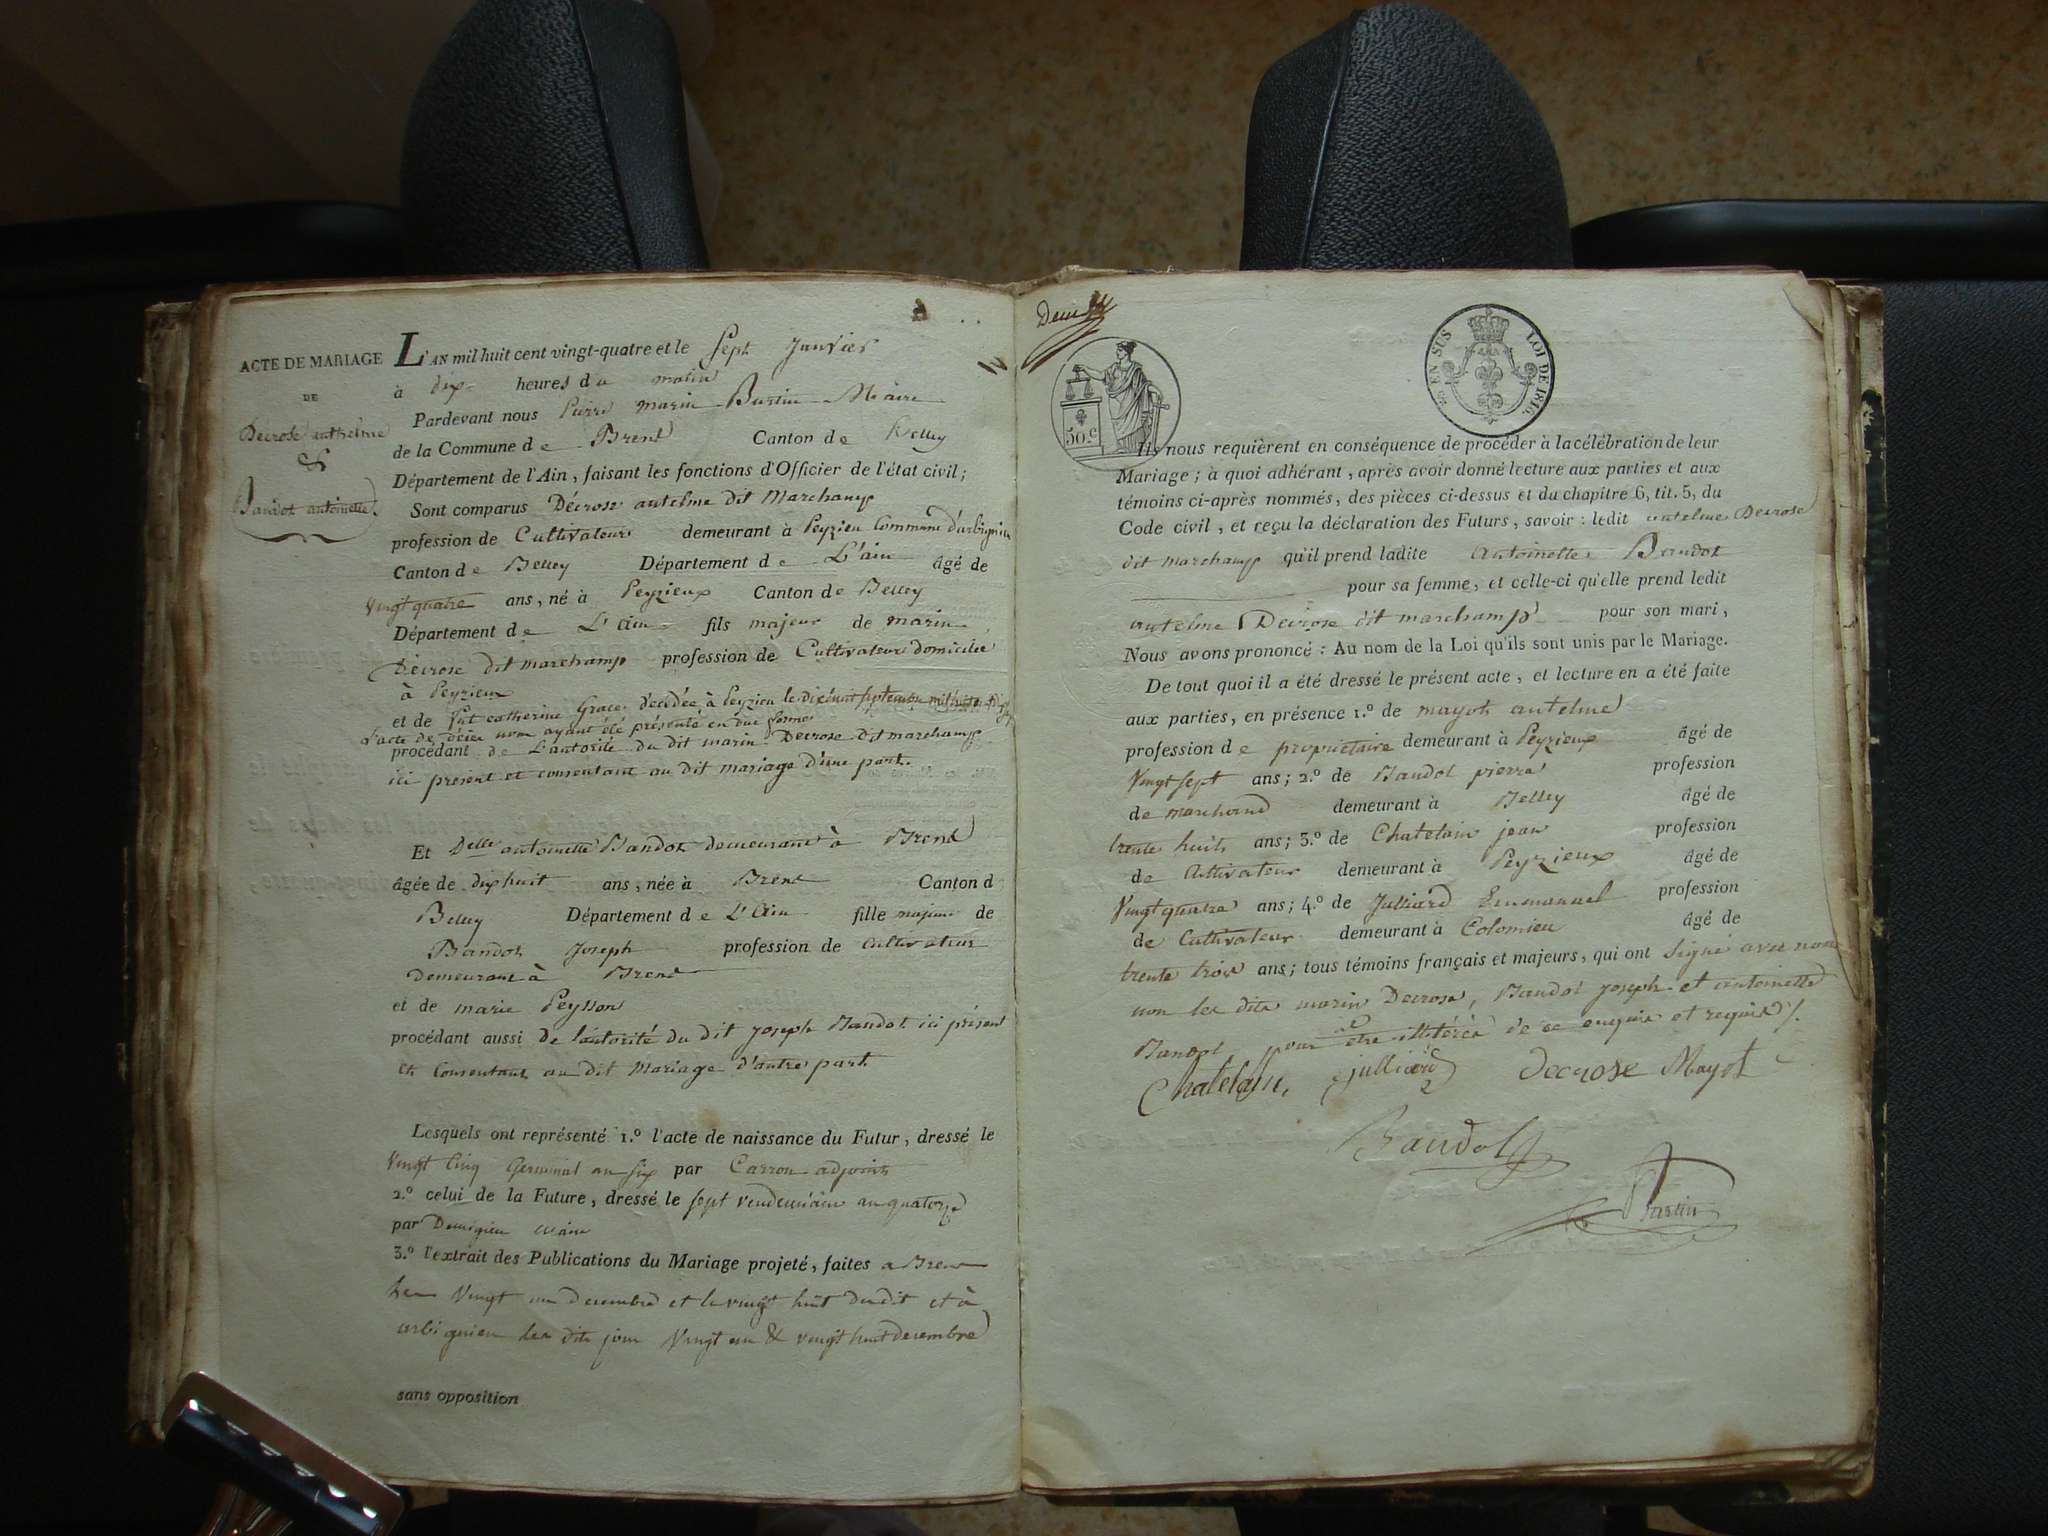 ACTE DE MARIAGE
DE
Decrose anthelme
&
Bandot antoinette.
L'AN mil huit cent vingt-quatre et le Sept Janvier
à dix heures du matin
Pardevant nous Pierre marin Burtin Maire
de la Commune de Brens Canton de Belley
Département de l'Ain, faisant les fonctions d'Officier de l'état civil;
Sont comparus Décrose antelme dit Marchamp
profession de Cultivateur demeurant à Peyzieu Commune d'arbignieu
Canton de Belley Département de L'ain âgé de
Vingt quatre ans, né à Peyzieux Canton de Belley
Département de L'ain fils majeur de marin
Décrose dit marchamp profession de Cultivateur domicilié
à Peyzieux
et de fut catherine Grace, décédée à Peyzieu le dixhuit septembre mil huit
l'acte de décès nous ayant été présenté en due forme
procédant de L'autorité du dit marin Decrose dit marchamp
ici présent et consentant au dit mariage d'une part.
Et Delle antoinette Bandot demeurant à Brens
âgée de dix huit ans, née à Brens Canton d
Belley Département de L'Ain fille majeure de
Bandot Joseph profession de cultivateur
demeurant à Brens
et de marie Peysson
procédant aussi de l'autorité du dit joseph Bandot ici présent
et Consentant au dit Mariage d'autre part
Lesquels ont représenté 1.º l'acte de naissance du Futur, dressé le
Vingt Cinq Germinal an six par Carron adjoint
2.º celui de la Future, dressé le sept vendemiaire an quatorze
par maire
3.º l'extrait des Publications du Mariage projeté, faites a Brens
les Vingt un decembre et le vingt huit dudit et à
arbignieu les dits jour Vingt un & vingt huit decembre
sans opposition
50.C
EN SUS LOI DE 1816.
Ils nous requièrent en conséquence de procéder à la célébration de leur
Mariage; à quoi adhérant, après avoir donné lecture aux parties et aux
témoins ci-après nommés, des pièces ci-dessus et du chapitre 6, tit. 5, du
Code civil, et reçu la déclaration des Futurs, savoir: ledit antelme Decrose
dit marchamp qu'il prend ladite Antoinette Bandot
pour sa femme, et celle-ci qu'elle prend ledit
antelme Decrose dit marchamp pour son mari,
Nous avons prononcé: Au nom de la Loi qu'ils sont unis par le Mariage.
De tout quoi il a été dressé le présent acte, et lecture en a été faite
aux parties, en présence 1.º de mayot antelme
profession de propriétaire demeurant à Peyzieux âgé de
Vingt sept ans; 2.º de Bandot pierre profession
de marchand demeurant à Belley âgé de
trente huit ans; 3.º de Chatelain jean profession
de Cultivateur demeurant à Peyzieux âgé de
Vingt quatre ans; 4.º de Julliard Emmanuel profession
de Cultivateur demeurant à Colomieu âgé de
trente trois ans; tous témoins français et majeurs, qui ont signé avec nous
non les dits marin Decrose, Bandot joseph et antoinette
Bandot pour être illitérés de ce enquis et requis /.
Chatelain, julliard decrose Mayot
Bandot
Burtin